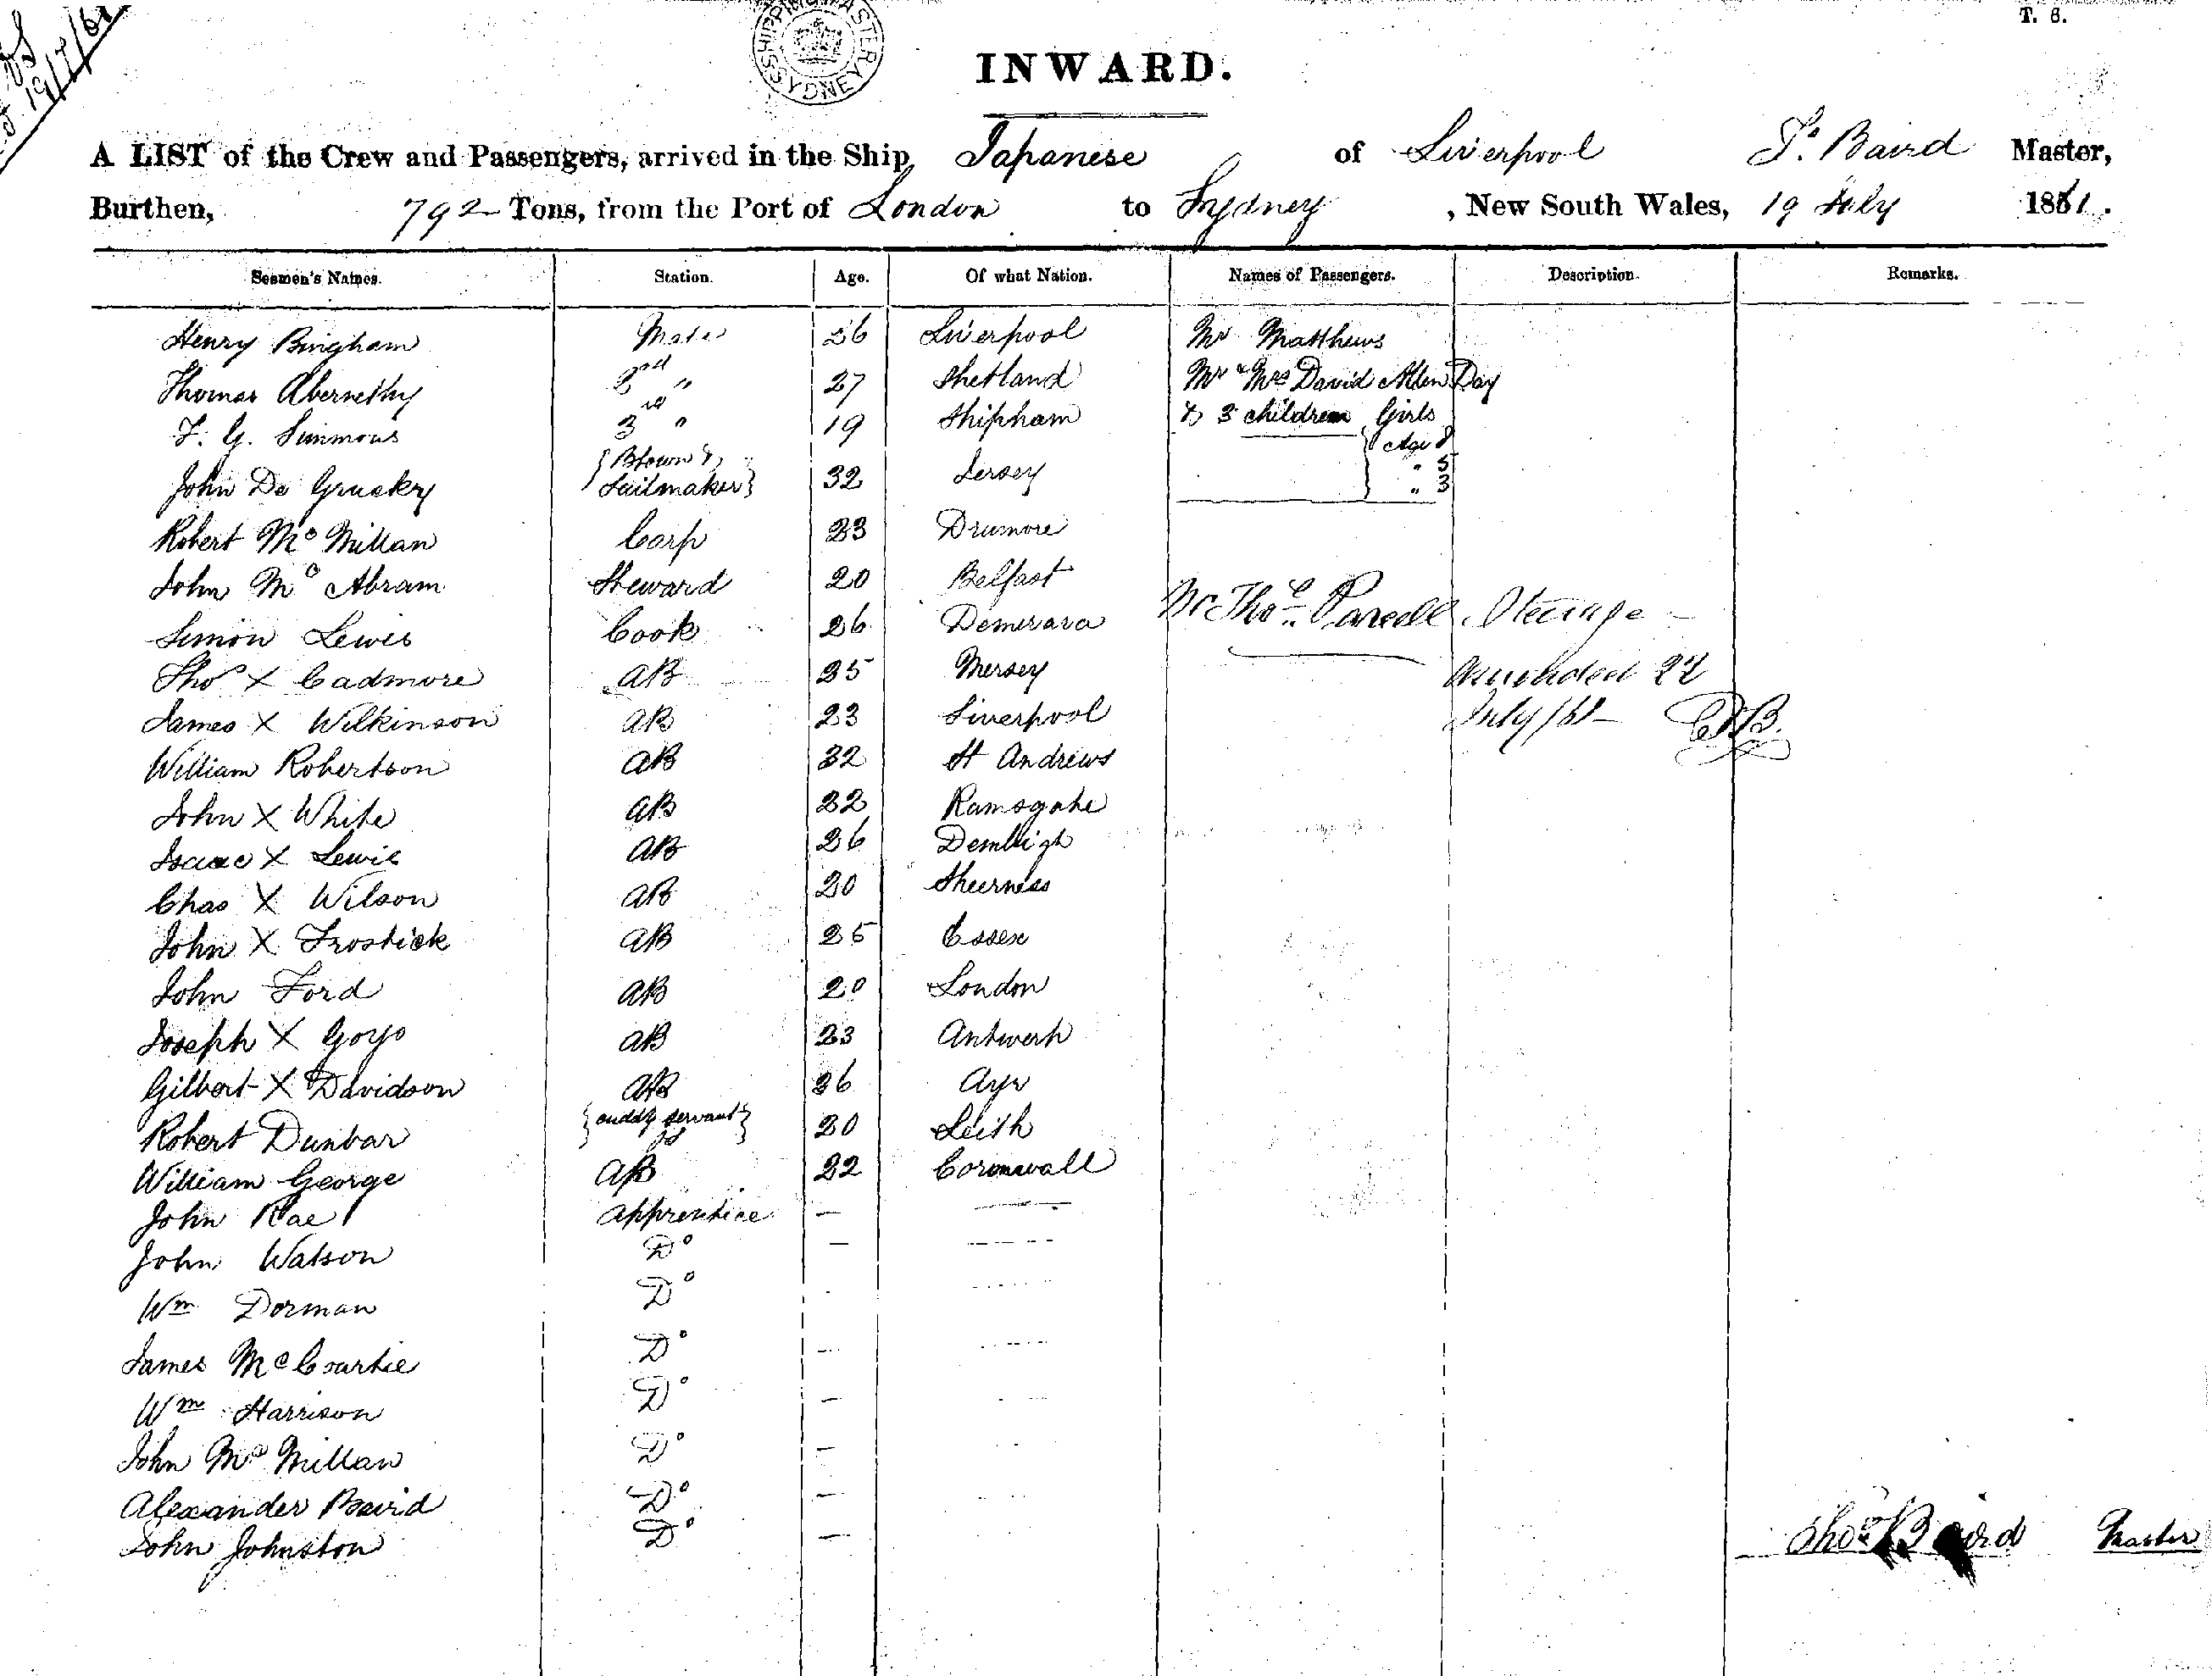 T. 6.
19/7/61
SHIPPING MASTER SYDNEY
INWARD.
A LIST of the Crew and Passengers, arrived in the Ship Japanese of Liverpool Ts. Baird Master,
Burthen, 792 Tons, from the Port of London to Sydney, New South Wales, 19 July 1861.
Seamen's Names. Station. Age. Of what Nation. Names of Passengers. Description. Remarks.
Henry Bingham Mate 26 Liverpool Mr Matthews
Thomas Abernethy 2nd " 27 Shetland Mr & Mrs David Allen Day
F. G. Simmons 3rd " 19 Shipham & 3 children Girls
Age 8
" 5
" 3
John De Gruchy { Bosun & Sailmaker } 32 Jersey
Robert Mc Millan Carp 23 Drumore
John Mc Abram Steward 20 Belfast
Simon Lewis Cook 26 Demerara Mr Thos Steerage
Thos X Cadmore AB 25 Mersey Amended 22
James X Wilkinson AB 23 Liverpool July /61
William Robertson AB 32 St Andrews
John X White AB 22 Ramsgate
Isaac X Lewis AB 26 Denbligh
Chas X Wilson AB 20 Sheerness
John X Frostick AB 25 Essex
John Ford AB 20 London
Joseph X Goyo AB 23 Antwerp
Gilbert X Davidson AB 26 Ayr
Robert Dunbar { cuddy servant } 20 Leith
William George AB 22 Cornwall
John Rae Apprentice —
John Watson Do —
Wm Dorman Do
James McCourtie Do —
Wm Harrison Do —
John Mc Millan Do —
Alexander Baird Do —
John Johnston Do —
Thos Baird Master